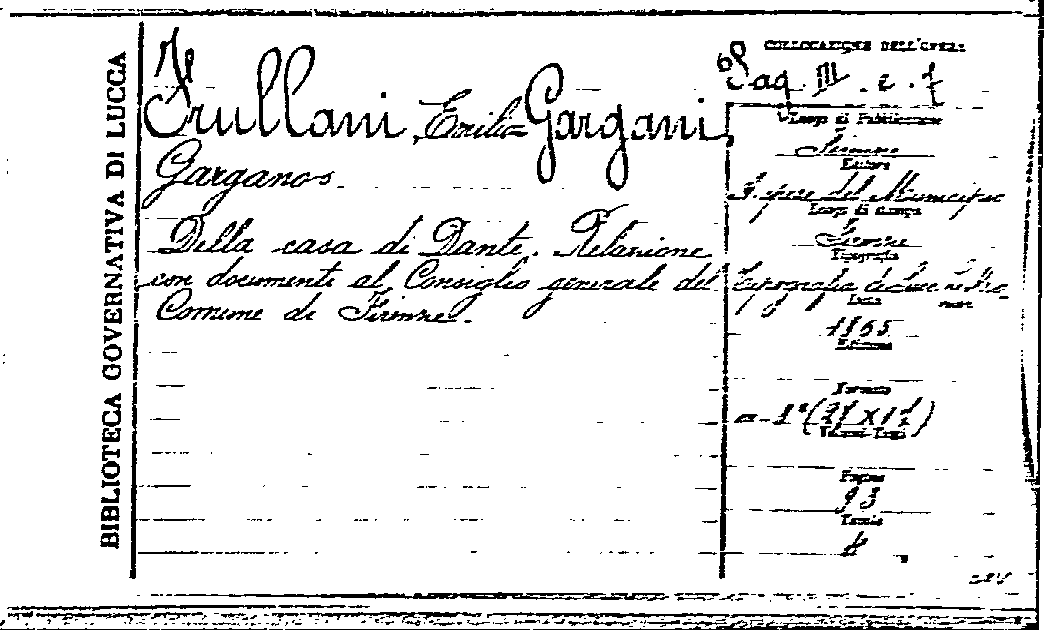 BIBLIOTECA GOVERNATIVA DI LUCCA
Frullani, Emilio = Gargani,
Garganos.
Della casa di Dante. Relazione
con documenti al Consiglio generale del
Comune di Firenze.
COLLOCAZIONE DELL'OPERA
Pag. III. c. 7
Luogo di Pubblicazione
Firenze
Editore
A spese del Municipio
Luogo di stampa
Firenze
Tipografia
Tipografia
1865
Edizione
Formato
Pagine
93
Tavole